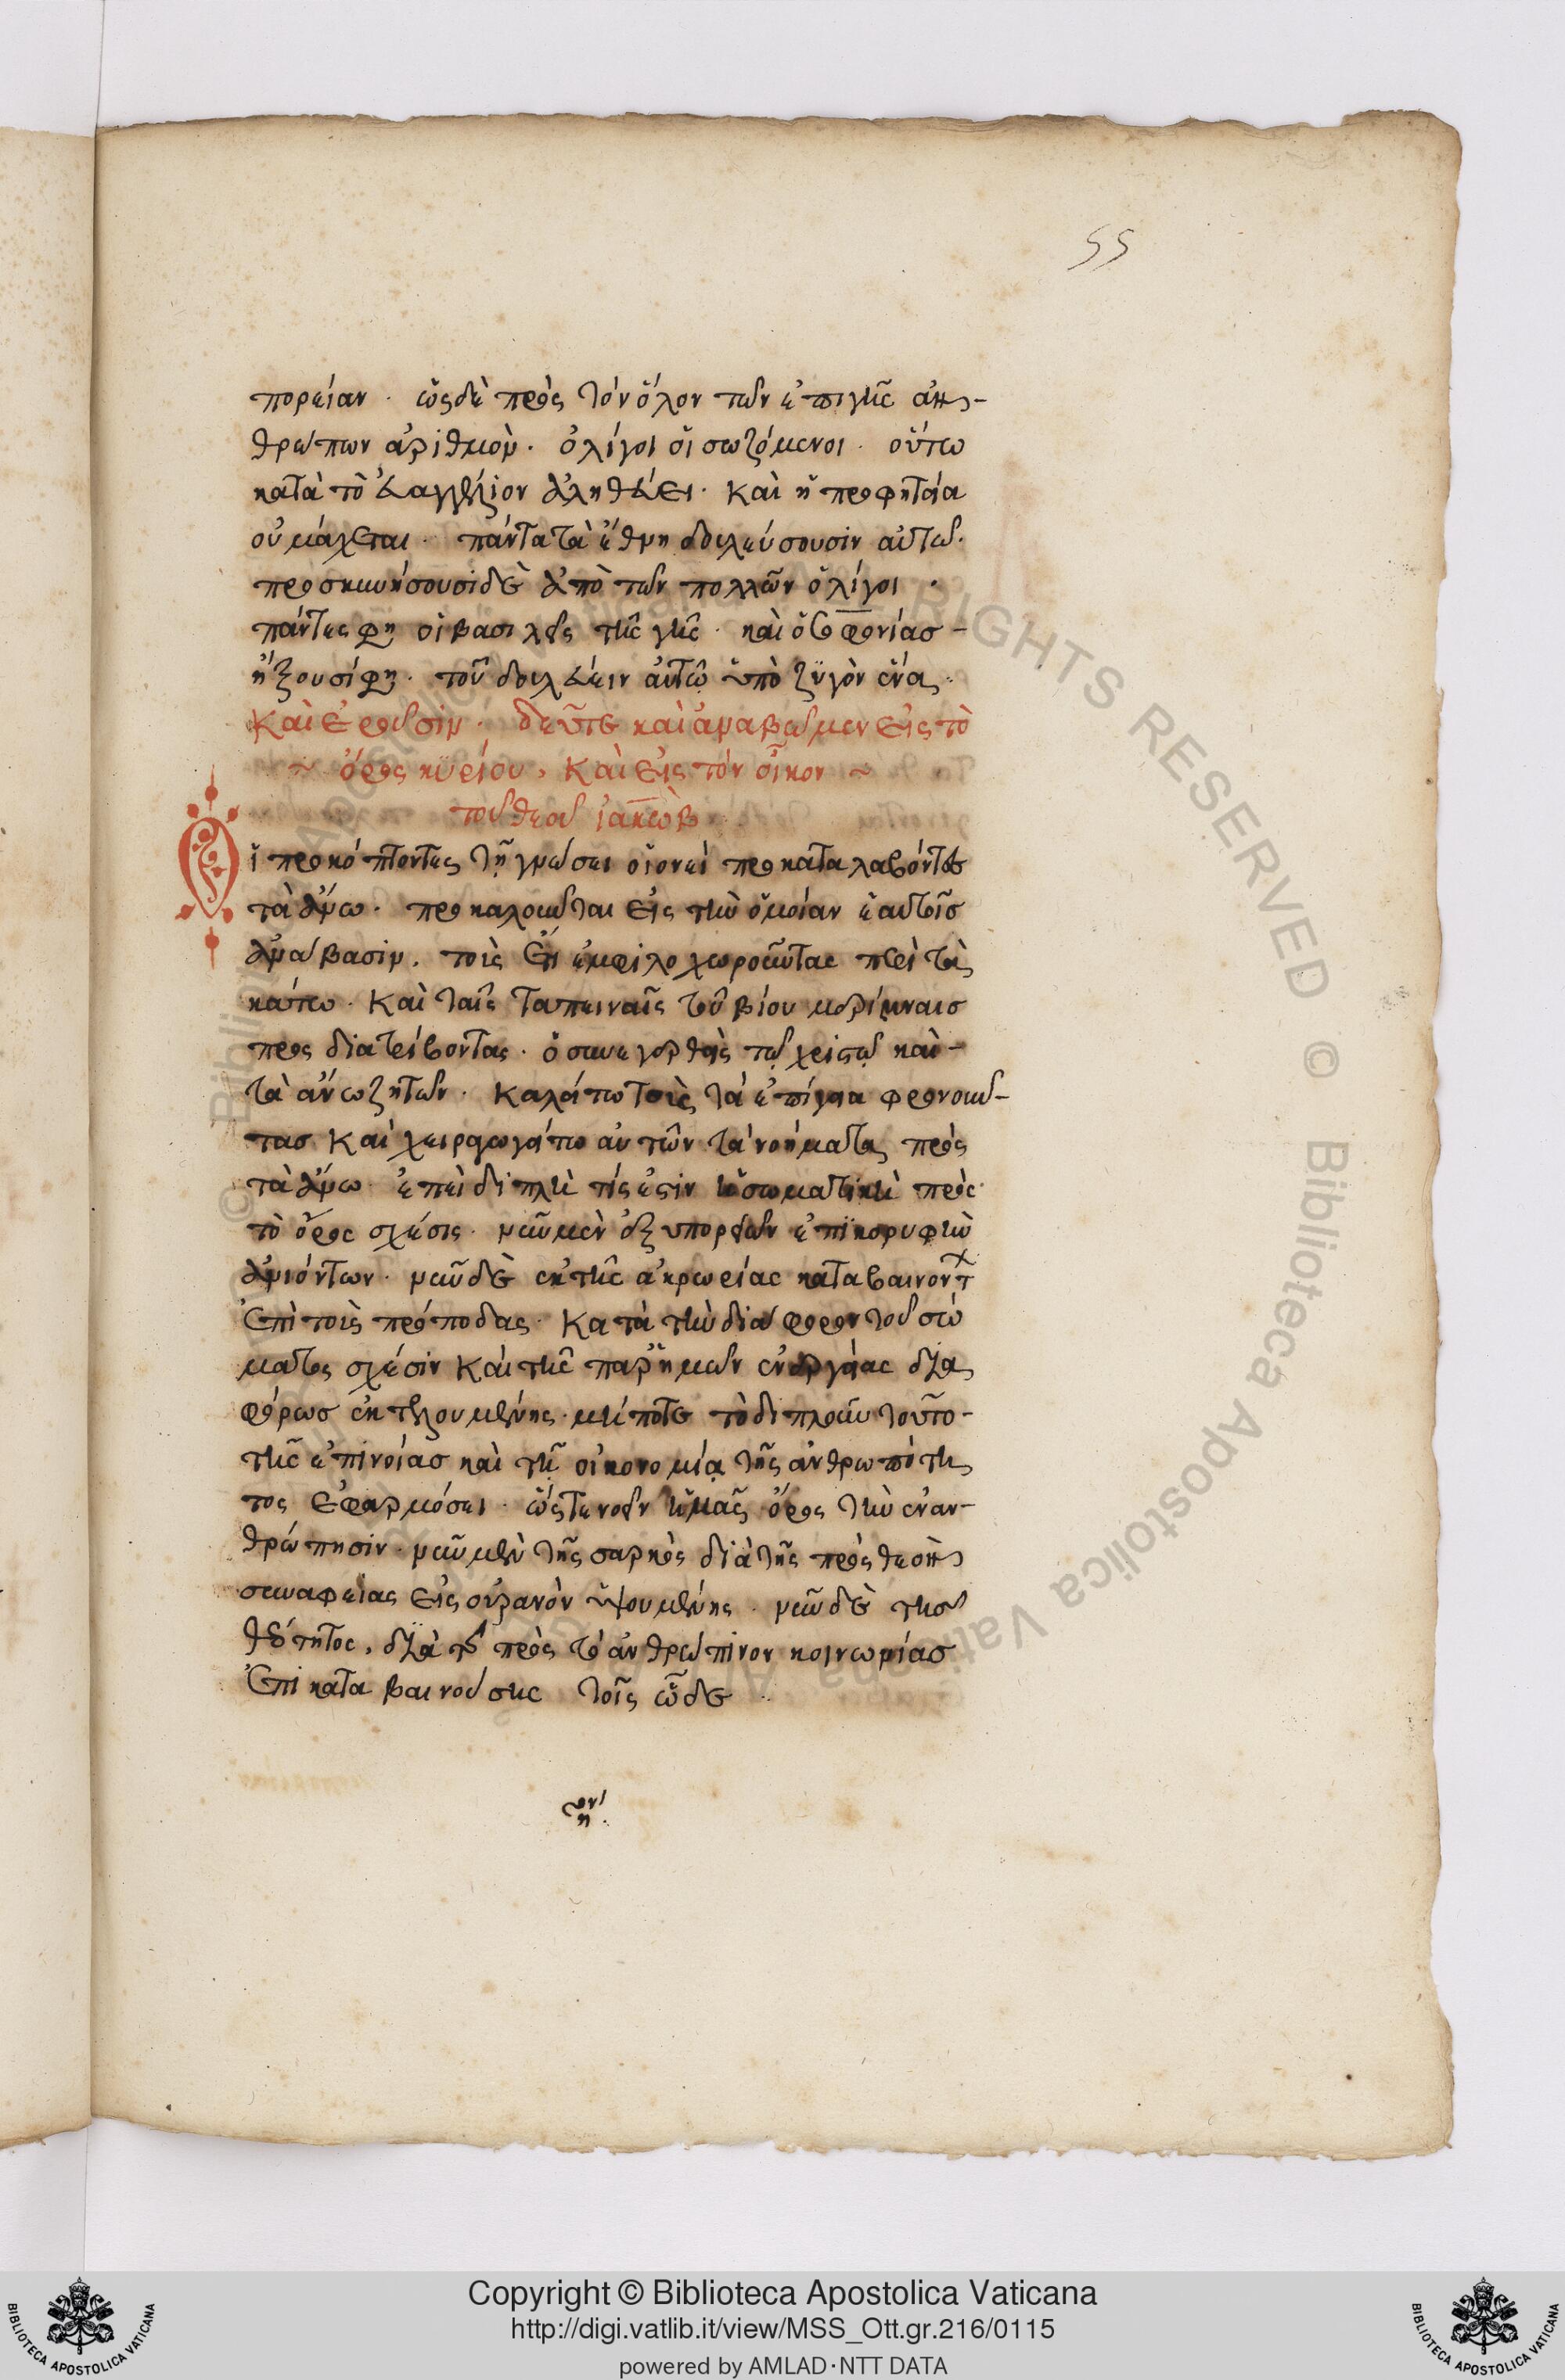 55
πορείαν · ὡς δὲ πρὸς τὸν ὅλον τῶν ἐπιγῆς ἀν-
θρώπων ἀριθμὸν · ὀλίγοι οἱ σωζόμενοι · οὕτω
κατὰ τὸ εὐαγγέλιον ἀληθεύει · καὶ ἡ προφητεία
οὐ μάχεται · πάντα τὰ ἔθνη δουλεύσουσιν αὐτῶ ·
προσκυνήσουσι δὲ ἀπὸ τῶν πολλῶν ὀλίγοι ·
πάντες φη οἱ βασιλεῖς τῆς γῆς · καὶ
ἥξουσί φη · τοῦ δουλεύειν αὐτῶ ὑπὸ ζυγὸν ἕνα ·
Καὶ ἐροῦσιν · δεῦτε καὶ ἀναβῶμεν εἰς τὸ
~ ὄρος κυρίου, καὶ εἰς τὸν οἶκον ~
τοῦ θεοῦ ἰακὼβ
Οἱ προκόπτοντες τῇ γνώσει οἱονεὶ προκαταλαβόντες
τὰ ἄνω · προκαλοῦνται εἰς τὴν ὁμοίαν ἑαυτοῖς
ἀνάβασιν · τοὺς ἔτι ἐμφιλοχωροῦντας περὶ τὰ
κάτω · καὶ ταῖς ταπειναῖς τοῦ βίου μερίμναις
προσδιατρίβοντας · ὁ συνεγερθεὶς τῷ χριστῷ καὶ -
τὰ ἄνω ζητῶν · καλείτω τοὺς τὰ ἐπίγεια φρονοῦν-
τας καὶ χειραγωγείτω αὐτῶν τὰ νοήματα πρὸς
τὰ ἄνω · ἐπεὶ διπλῆ τίς ἐστιν ἡ σωματικὴ πρὸς
τὸ ὄρος σχέσις · νῦν μὲν ἐκ τῶν ὑπορειῶν ἐπὶ κορυφὴν
ἀνιόντων · νῦν δὲ ἐκ τῆς ἀκρωρείας καταβαινοντ
ἐπὶ τοὺς πρόποδας · κατὰ τὴν διάφορον τοῦ σώ
ματος σχέσιν καὶ τῆς παρ' ἡμῶν ἐνεργείας δια
φόρως ἐκτελουμένης · μήποτε τὸ διπλοῦν τοῦτο -
τῆς ἐπινοίας καὶ τῇ οἰκονομίᾳ τῆς ἀνθρωπότη
τος ἐφαρμόσει · ὥστε νοεῖν ἡμᾶς ὄρος τὴν ἐναν-
θρώπησιν · νῦν μὲν τῆς σαρκὸς διὰ τῆς πρὸς θεὸν
συναφείας εἰς οὐρανὸν ὑψουμένης · νῦν δὲ τῆς
θεότητος, διὰ τῆς πρὸς τὸ ἀνθρώπινον κοινωνίας
ἐπικαταβαινούσης τοῖς ὧδε ·
Copyright © Biblioteca Apostolica Vaticana
http://digi.vatlib.it/view/MSS_Ott.gr.216/0115
powered by AMLAD·NTT DATA